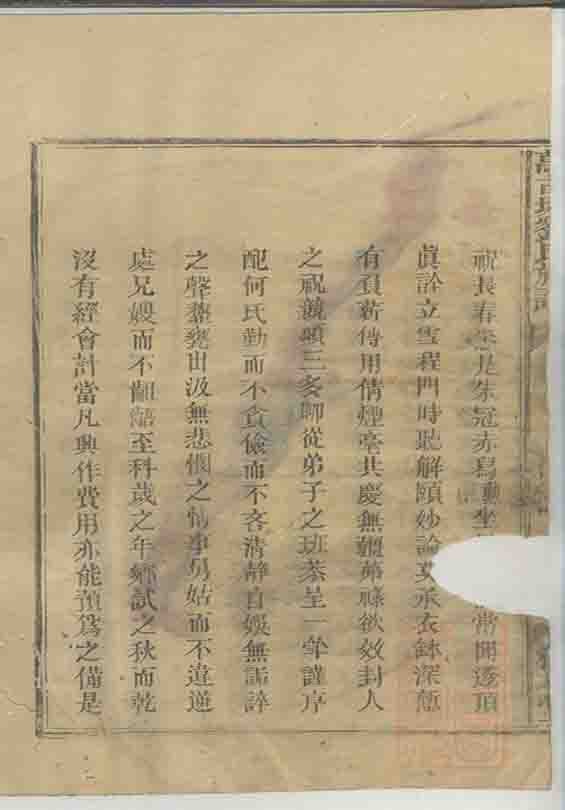 祝長春是朱冠赤舄坐常開透頂
眞訟立雪程門時聆解頤妙論又承衣鉢深慙
有負薪傳用倩煙毫共慶無疆茀祿欲效封人
之祝競頌三多師從弟子之班恭呈一觧謹序
配何氏勤而不貪儉而不吝清靜自娛無詬誶
之聲藜甕出汲無悲恨之情事舅姑而不違逆
處兄嫂而不齟齬至科歲之年鄉試之秋而乾
沒有經會計當凡興作費用亦能預爲之備是